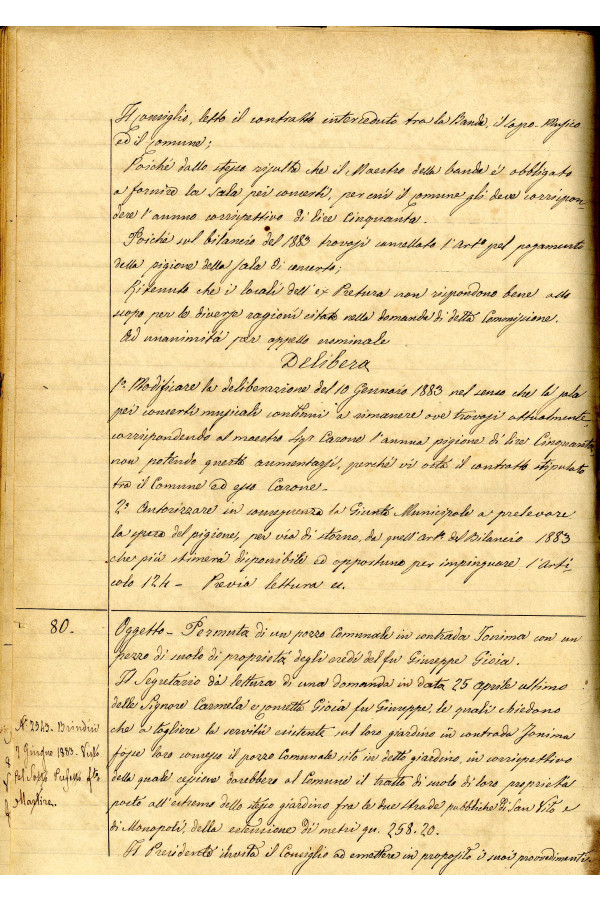 Il Consiglio, letto il contratto interceduto tra la Banda, il Capo-Musico
ed il Comune;
Poiché dallo stesso risulta che il Maestro della banda è obbligato
a fornire la sala pei concerti, per cui il Comune gli deve corrispon-
dere l'annuo corrispettivo di lire Cinquanta.
Poiché sul bilancio del 1883 trovasi cancellato l'Art.º pel pagamento
della pigione della sala di concerto;
Ritenuto che i locali dell'ex Pretura non rispondono bene allo
scopo per le diverse ragioni citate nella domanda di detta Commissione.
Ad unanimità per appello nominale
Delibera
1º Modificare la deliberazione del 10 Gennaio 1883 nel senso che la sala
pei concerti musicali continui a rimanere ove trovasi attualmente
corrispondendo al maestro Sigr Carone l'annua pigione di lire Cinquanta
non potendo questa aumentarsi, perché vi osta il contratto stipulato
tra il Comune ed esso Carone_
2º Autorizzare in conseguenza la Giunta Municipale a prelevare
la spesa del pigione, per via di storno, da quell'Art.º del Bilancio 1883
che più stimerà disponibile ed opportuno per impinguare l'Arti-
colo 124_ Previa lettura
80.
Oggetto_ Permuta di un pozzo Comunale in contrada Ionima con un
pezzo di suolo di proprietà degli eredi del fu Giuseppe Gioia.
Il Segretario dà lettura di una domanda in data 25 aprile ultimo
delle Signore Carmela e Gioia fu Giuseppe, le quali chiedono
che a togliere la servitù esistente sul loro giardino in contrada Ionima
fosse loro concesso il pozzo Comunale sito in detto giardino, in corrispettivo
della quale cessione darebbero al Comune il tratto di suolo di loro proprietà
posto all'estremo dello stesso giardino fra le due strade pubbliche di San Vito e
di Monopoli, della estensione di metri qu. 258.20.
Il Presidente invita il Consiglio ad emettere in proposito i suoi provvedimenti.
Nº 2343. Brindisi
7 Giugno 1883. Visto
Pel Sotto Prefetto
Martire.